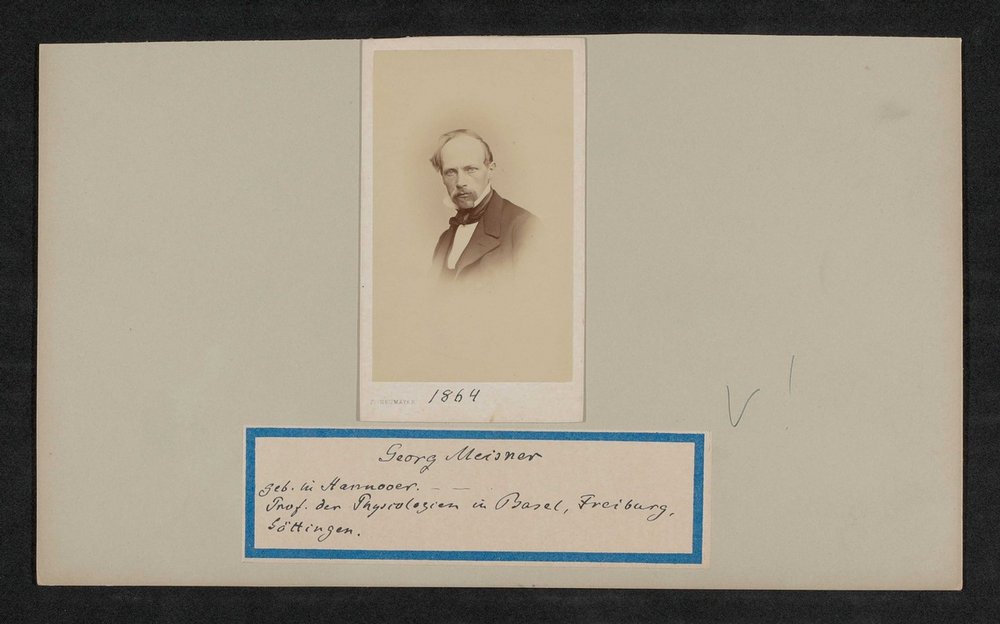 1864
Georg Meisner
geb. in Hannover. — —
Prof. der Physiologien in Basel, Freiburg,
Göttingen.
V !